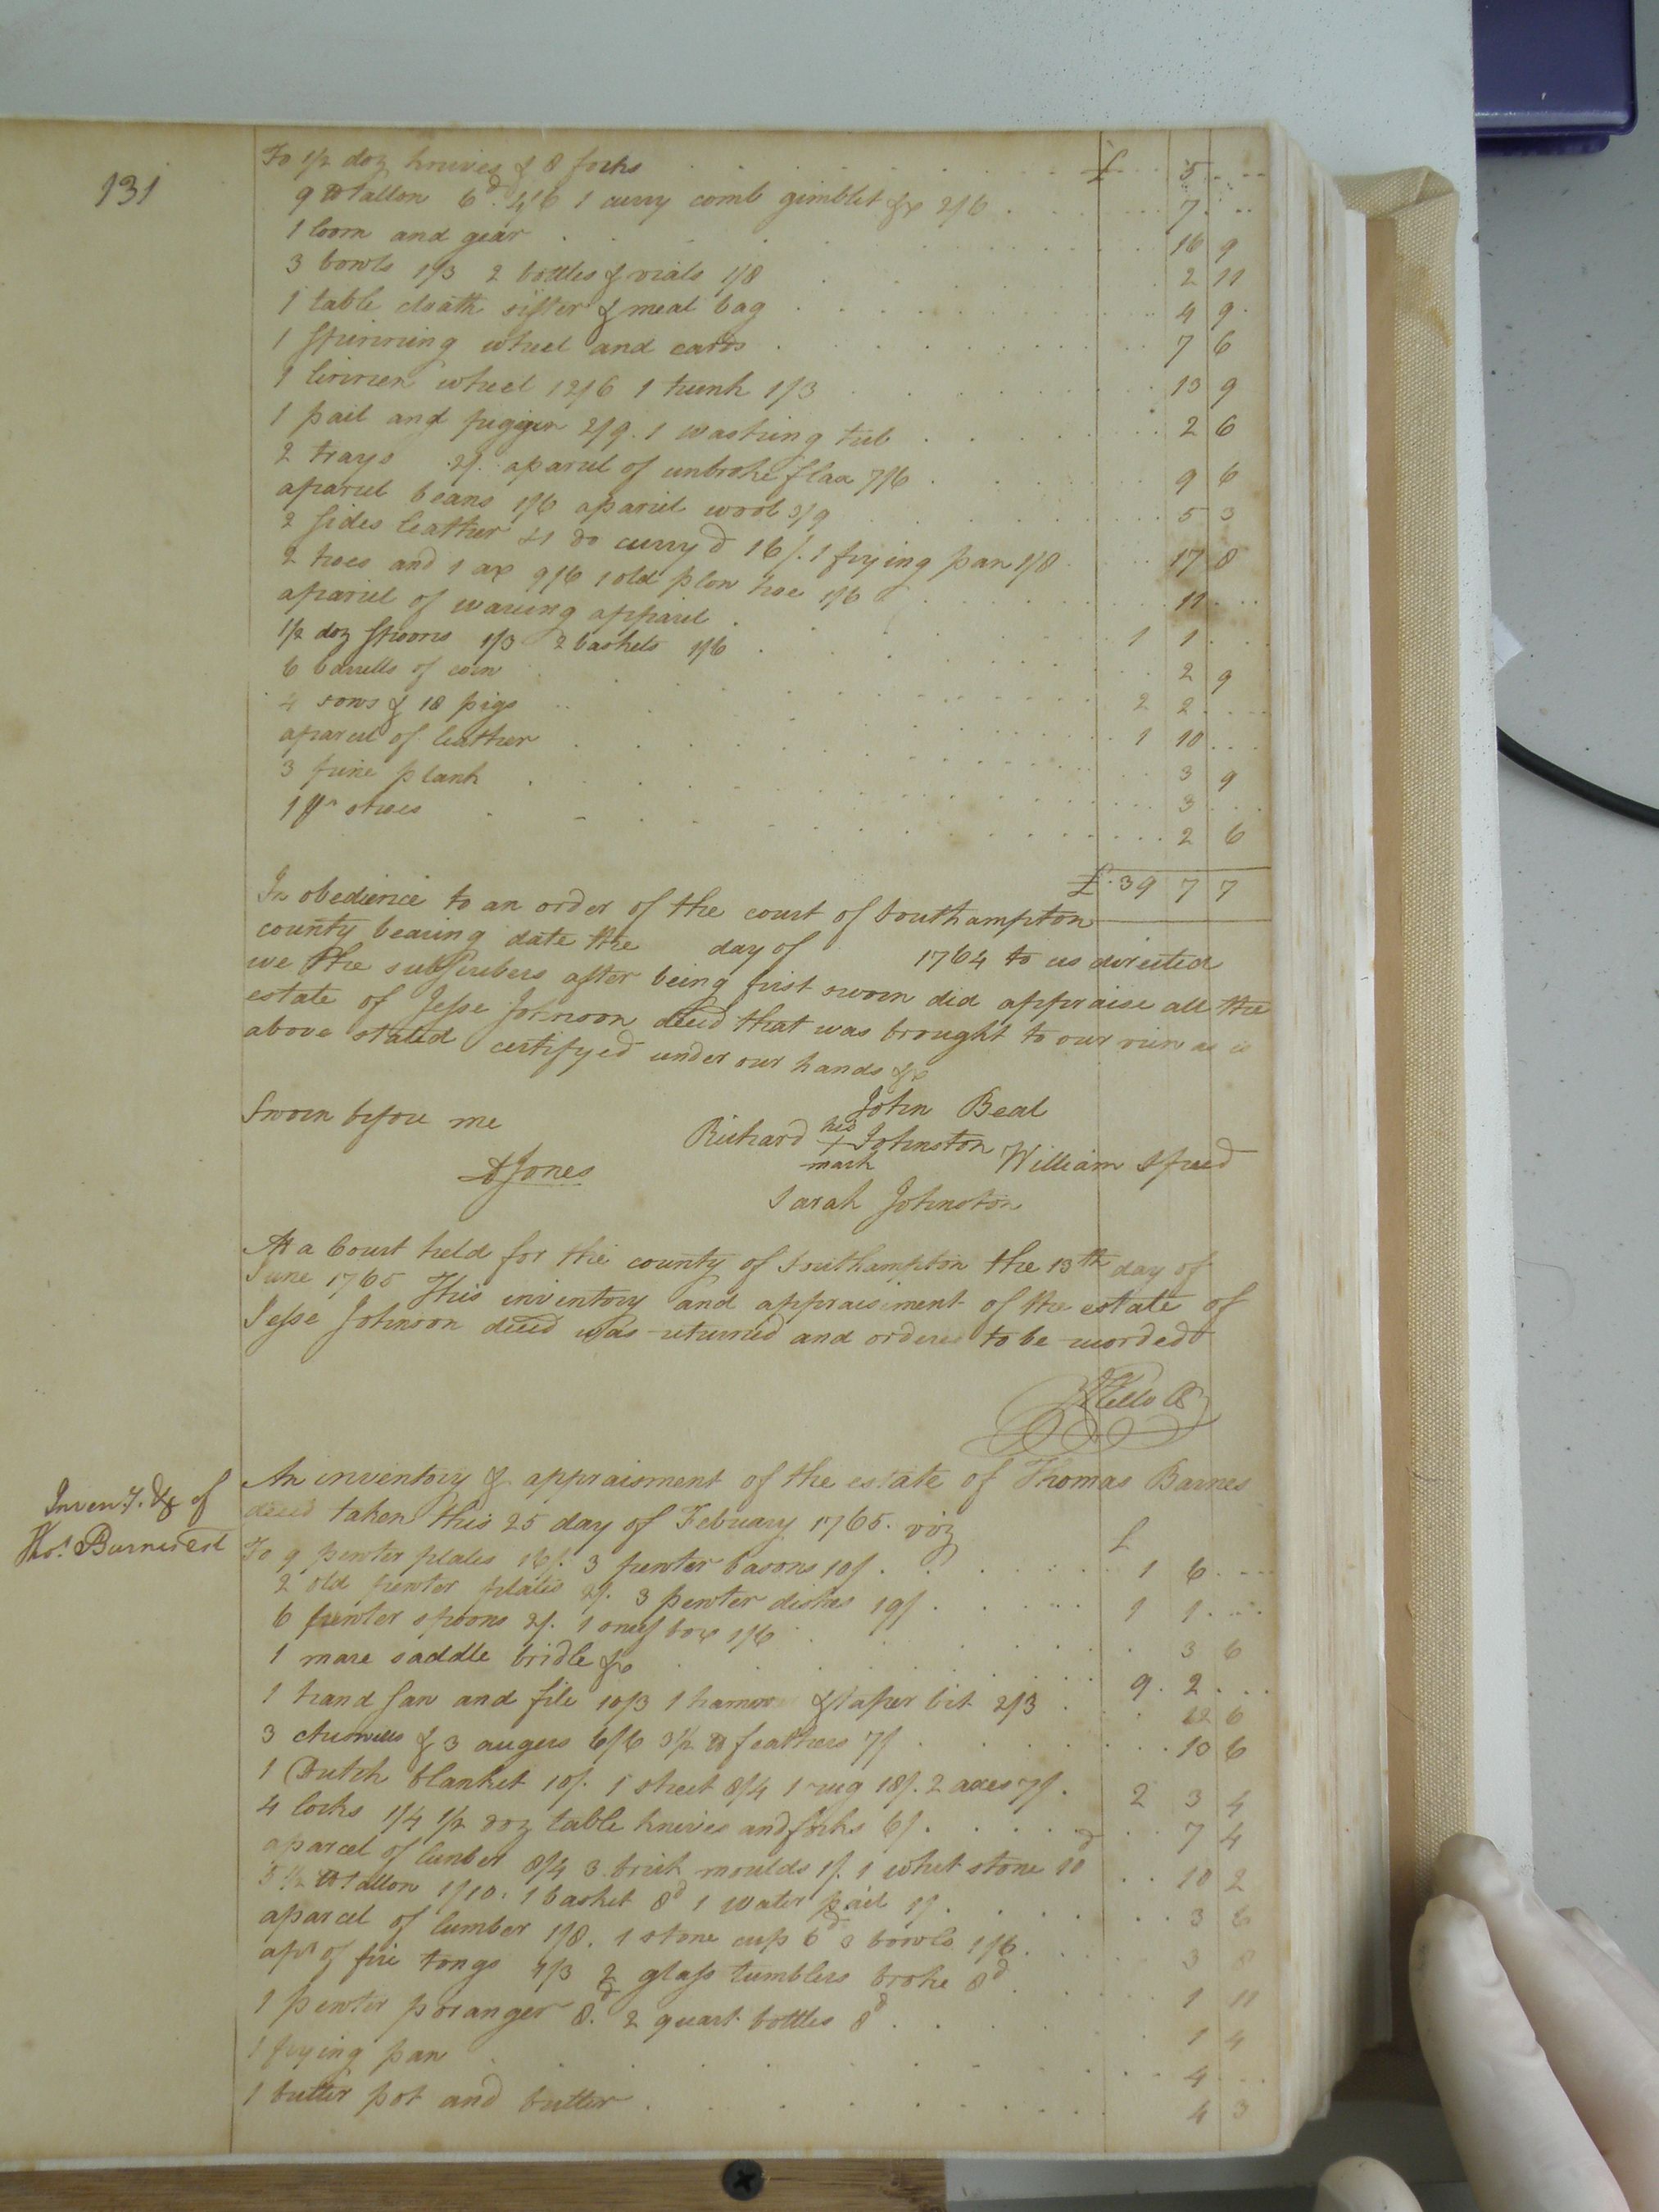 131
To 1/2 doz knives & 8 forks £ 5
9 lb tallon 6d. 4/6 1 curry comb gimblet &c 2/6 7
1 loom and gear 16 9
3 bowls 1/3 2 bottles & vials 1/8 2 11
1 table cloath sifter & meal bag 4 9
1 spinning wheel and cards 7 6
1 linnen wheel 12/6 1 trunk 1/3 13 9
1 pail and piggin 2/9. 1 washing tub 2 6
2 trays 2/. aparcel of unbroke flax 7/6 9 6
aparcel beans 1/6 aparcel wool 3/9 5 3
2 sides leather & 1 do curry'd 16/. 1 frying pan 1/8 17 8
2 hoes and 1 ax 9/6 1 old plow hoe 1/6 11
aparcel of waring apparel 1 1
1/2 doz spoons 1/3 2 baskets 1/6 2 9
6 barrells of corn 2 2
4 sows & 18 pigs 1 10
aparcel of leather 3 9
3 pine plank 3
1 pr shoes 2 6
£. 39 7 7
In obedience to an order of the court of Southampton
county bearing date the day of 1764 to us directed
we the subscribers after being first sworn did appraise all the
estate of Jesse Johnson decd that was brought to our view as is
above stated certifyed under our hands &c
John Beal
Sworn before me Richard his + mark Johnston William Speed
A Jones
Sarah Johnston
At a Court held for the county of Southampton the 13th day of
June 1765 This inventory and appraisiment of the estate of
Jesse Johnson decd was returned and ordered to be recorded
Kello
Inven.y. &c of
Tho.s Barnes est
An inventory & appraisment of the estate of Thomas Barnes
decd taken this 25 day of February 1765. viz £
To 9 pewter plates 16/. 3 pewter basons 10/. 1 6
2 old pewter plates 2/. 3 pewter dishes 19/. 1 1
6 pewter spoons 2/. 1 box 1/6 3 6
1 mare saddle bridle &c 9 2
1 hand saw and file 10/3 1 hammer & taper bit 2/3 12 6
3 & 3 augers 6/6 3 1/2 lb feathers 7/ 10 6
1 Dutch blanket 10/. 1 sheet 8/4 1 rug 18/. 2 axes 7/. 2 3 4
4 locks 1/4 1/2 doz table knives and forks 6/. 7 4
aparcel of lumber 8/4 3 brick moulds 1/. 1 whet stone 10d 10 2
5 1/2 lb tallon 1/10. 1 basket 8d 1 water pail 1/. 3 6
aparcel of lumber 1/8. 1 stone cup 6d 3 bowls 1/6. 3 8
apr of fire tongs 1/3 2 glass tumblers broke 8d 1 11
1 pewter poranger 8d. 2 quart bottles 8d 1 4
1 frying pan 4
1 butter pot and butter 4 3